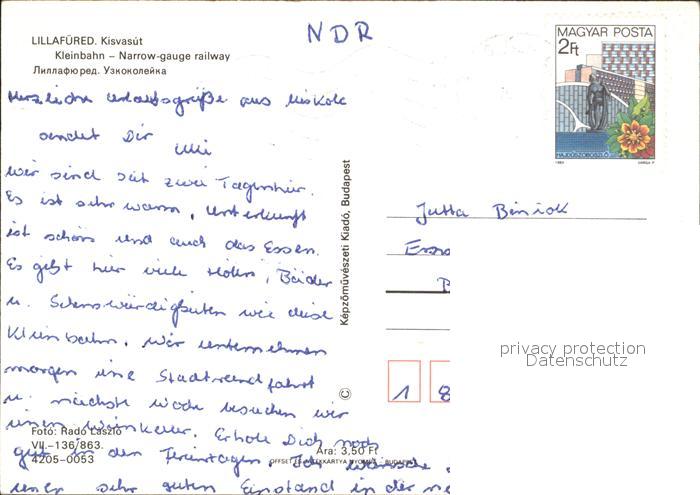 NDR
LILLAFÜRED. Kisvasút
Kleinbahn – Narrow-gauge railway
Лиллафюред. Узкоколейка
MAGYAR POSTA
2Ft
HAJDÚSZOBOSZLÓ
1983 VARGA P.
Herzliche Urlaubsgrüße aus Miskolc
sendet Dir
Uli
Wir sind seit zwei Tagen hier.
Es ist sehr warm, Unterkunft
ist schön und auch das Essen.
Es gibt hier viele Höhlen, Bäder
u. Sehenswürdigkeiten wie diese
Kleinbahn. Wir unternehmen
morgen eine Stadtrundfahrt
u. nächste Woche besuchen wir
einen Weinkeller. Erhole Dich noch
gut in den Ferientagen. Ich wünsche
einen sehr guten Einstand in der
Képzőművészeti Kiadó, Budapest
©
Jutta
1 8
privacy protection
Datenschutz
Fotó: Radó László
VII.-136/863.
4205-0053
Ára: 3,50 Ft